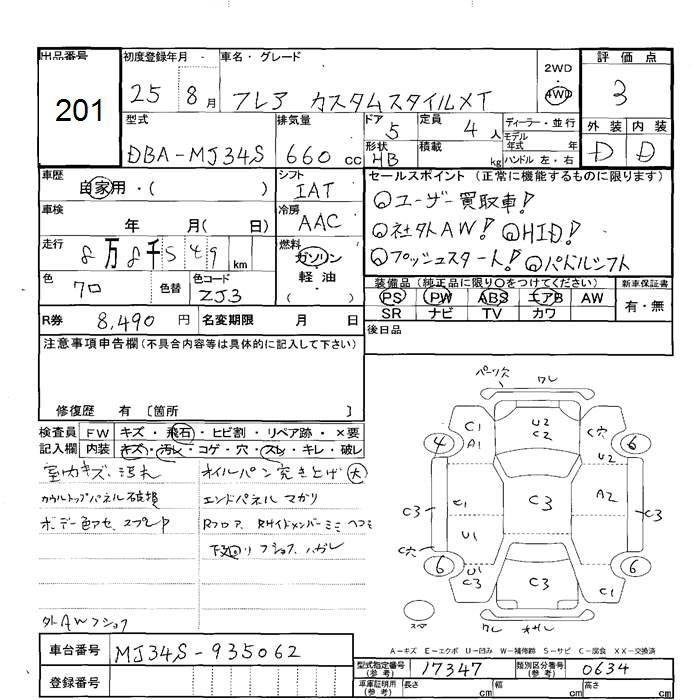 出品番号
201
初度登録年月
25 8月
車名・グレード
フレア カスタムスタイルXT
2WD
4WD
評価点
3
外装 内装
D D
型式
DBA-MJ34S
排気量
660cc
ドア
5
形状
HB
定員
4人
積載
kg
ディーラー・並行
モデル年式 年
ハンドル 左・右
車歴
自家用・( )
シフト
IAT
セールスポイント (正常に機能するものに限ります)
◎ユーザー買取車!
◎社外AW! ◎HID!
◎プッシュスタート! ◎パドルシフト
車検
年 月( 日)
冷房
AAC
走行
8万8千549km
燃料
ガソリン
軽油
( )
色
クロ
色替
色コード
ZJ3
装備品 (純正品に限り○をつけてください)
PS PW ABS エアB AW
SR ナビ TV カワ
新車保証書
有・無
R券 8,490円
名変期限 月 日
後日品
注意事項申告欄(不具合内容等は具体的に記入して下さい)
修復歴 有 [箇所 ]
検査員記入欄
FW キズ・飛石・ヒビ割・リペア跡・×要
内装 キズ・汚レ・コゲ・穴・スレ・キレ・破レ
室内キズ、汚れ
オイルパン突き上げ 大
カウルトップパネル破損
エンドパネル マガリ
ボデー色アセ、スプレP
Rフロア、Rサイドメンバー
下回り
外AW
パーツ穴 ワレ
C1 A1 U2 C2 C穴 U2
4 6
C3 C3 A2 C3
U1
C穴
6 6
U1 C3 C3 C1
スペア
ワレ
A-キズ E-エクボ U-凹み W-補修跡 S-サビ C-腐食 XX-交換済
車台番号 MJ34S-935062
登録番号
型式指定番号(参考) 17347
類別区分番号(参考) 0634
車庫証明用(参考) 長さ cm 幅 cm 高さ cm